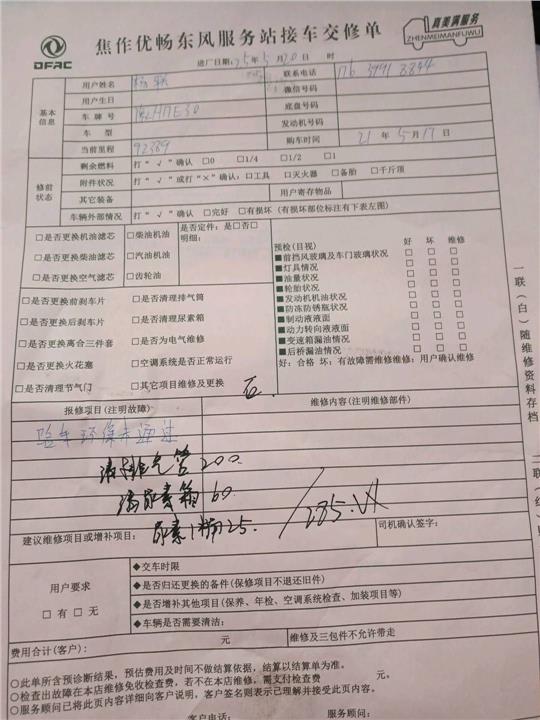 DFAC
焦作优畅东风服务站接车交修单
真美满服务
ZHENMEIMANFUWU
进厂日期:25年5月20日 时
基本信息
用户姓名 杨
联系电话 176 3991 3844
用户生日
微信号码
车牌号 HTE30
底盘号码
车型
发动机号码
当前里程 92389
购车时间 21年5月17日
修前状态
剩余燃料 打“√”确认 □0 □1/4 □1/2 □1
附件状况 打“√”或打“×”确认:□工具 □灭火器 □备胎 □千斤顶
其它装备
用户寄存物品
车辆外部情况 打“√”确认 □完好 □有损坏(有损坏部位标注有下表左图)
□是否更换机油滤芯 □柴油机油 是否定件:是□否□
明细:
□是否更换柴油滤芯 □汽油机油
□是否更换空气滤芯 □齿轮油
□是否更换前刹车片 □是否清理排气筒
□是否更换后刹车片 □是否清理尿素箱
□是否更换离合三件套 □是否为电气维修
□是否更换火花塞 □空调系统是否正常运行
□是否清理节气门 □其它项目维修及更换 否.
预检(目视) 好 坏 维修
■前挡风玻璃及车门玻璃状况 □ □ □
■灯具情况 □ □ □
■油量状况 □ □ □
■轮胎状况 □ □ □
■发动机机油状况 □ □ □
■防冻防锈瓶状况 □ □ □
■制动液液面 □ □ □
■动力转向液液面 □ □ □
■变速箱漏油情况 □ □ □
■后桥漏油情况 □ □ □
好:合格 坏:有故障需维修维修:用户确认维修
报修项目(注明故障)
维修内容(注明维修部件)
验车环保未通过
清排气管200.
清尿素箱60.
尿素1桶25.
285.VX
建议维修项目或增补项目:
司机确认签字:
用户要求
□有□无
◆交车时限
◆是否归还更换的备件(保修项目不退还旧件)
◆是否增补其他项目(保养、年检、空调系统检查、加装项目等)
◆车辆是否需要清洁:
费用合计(客户): 元
维修及三包件不允许带走
○此单所含预诊断结果,预估费用及时间不做结算依据,结算以结算单为准。
○检查出故障在本店维修免收检查费,若不在本店维修,需支付检查费 元。
○服务顾问已将此页内容详细向客户说明,客户签名则表示已理解并接受此页内容。
客户电话: 服务顾问:
一联(白)随维修资料存档